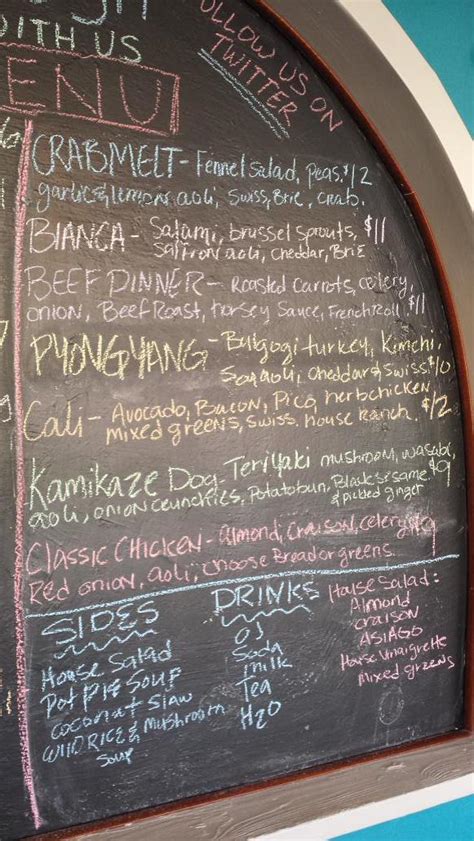 WITH US
FOLLOW US ON
TWITTER
MENU
CRABMELT - Fennel salad, peas, $12
garlic & lemon aoli, Swiss, Brie, crab.
BIANCA - Salami, brussel sprouts, $11
saffron aoli, cheddar, Brie
BEEF DINNER - Roasted carrots, celery,
onion, Beef Roast, horsey sauce, French Roll $11
PYONGYANG - Bulgogi turkey, Kimchi,
Soy aoli, cheddar & swiss. $10
Cali - Avocado, Bacon, Pico, herb chicken,
mixed greens, swiss, house ranch. $12
Kamikaze Dog - Teriyaki mushroom, wasabi
aoli, onion crunchies, Potato bun, Black sesame $9
& pickled ginger
CLASSIC CHICKEN - almond, craison, celery $9
Red onion, aoli, choose Bread or greens.
SIDES
House Salad
Pot Pie Soup
coconut slaw
WILD RICE & Mushroom
Soup
DRINKS
OJ
Soda
milk
Tea
H2O
House Salad:
Almond
craison
ASIAGO
House Vinaigrette
Mixed greens